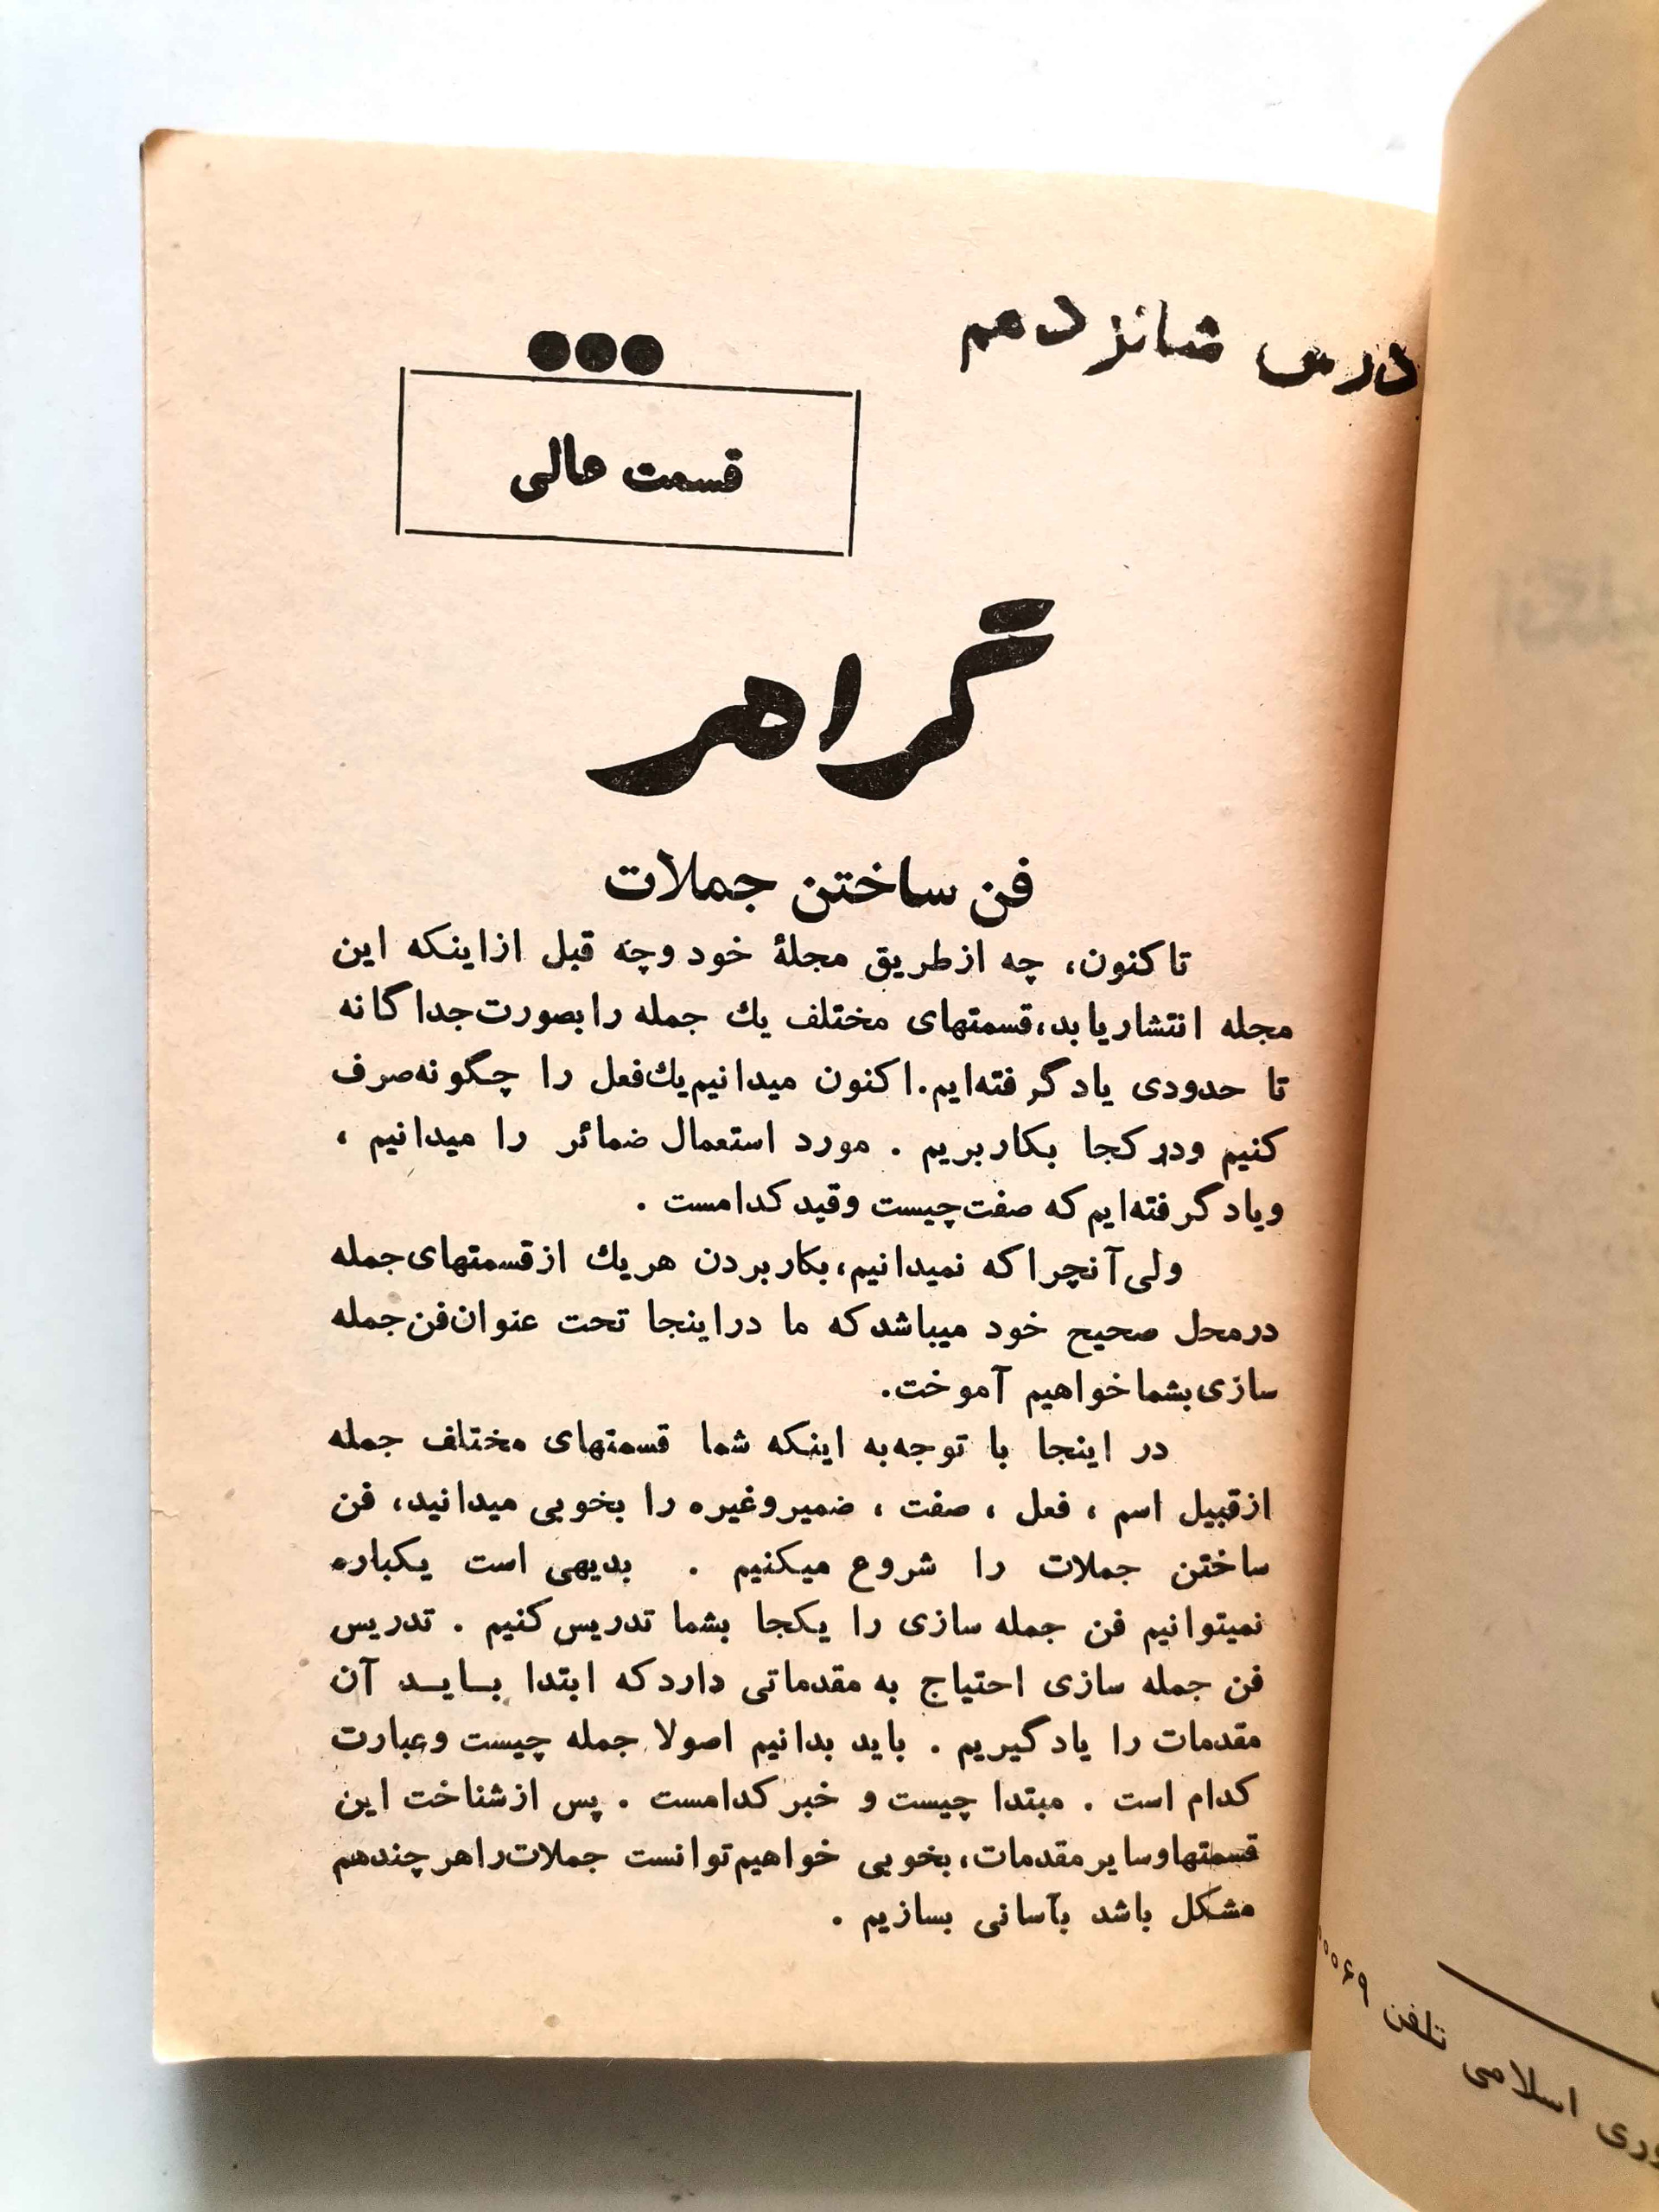 درس شانزدهم
قسمت عالی
گرامر
فن ساختن جملات
تاکنون، چه از طریق مجلهٔ خود و چه قبل از اینکه این
مجله انتشار یابد، قسمتهای مختلف یك جمله را بصورت جداگانه
تا حدودی یاد گرفته‌ایم. اکنون میدانیم یك فعل را چگونه صرف
کنیم و در کجا بکار بریم . مورد استعمال ضمائر را میدانیم ،
و یاد گرفته‌ایم که صفت چیست و قید کدامست .
ولی آنچرا که نمیدانیم، بکار بردن هر یك از قسمتهای جمله
در محل صحیح خود میباشد که ما در اینجا تحت عنوان فن جمله
سازی بشما خواهیم آموخت.
در اینجا با توجه به اینکه شما قسمتهای مختلف جمله
از قبیل اسم ، فعل ، صفت ، ضمیر و غیره را بخوبی میدانید، فن
ساختن جملات را شروع میکنیم . بدیهی است یکباره
نمیتوانیم فن جمله سازی را یکجا بشما تدریس کنیم . تدریس
فن جمله سازی احتیاج به مقدماتی دارد که ابتدا بـایـد آن
مقدمات را یاد گیریم . باید بدانیم اصولا جمله چیست و عبارت
کدام است . مبتدا چیست و خبر کدامست . پس از شناخت این
قسمتها و سایر مقدمات، بخوبی خواهیم توانست جملات را هر چند هم
مشکل باشد بآسانی بسازیم .
وری اسلامی تلفن ۶۹۰۰۰